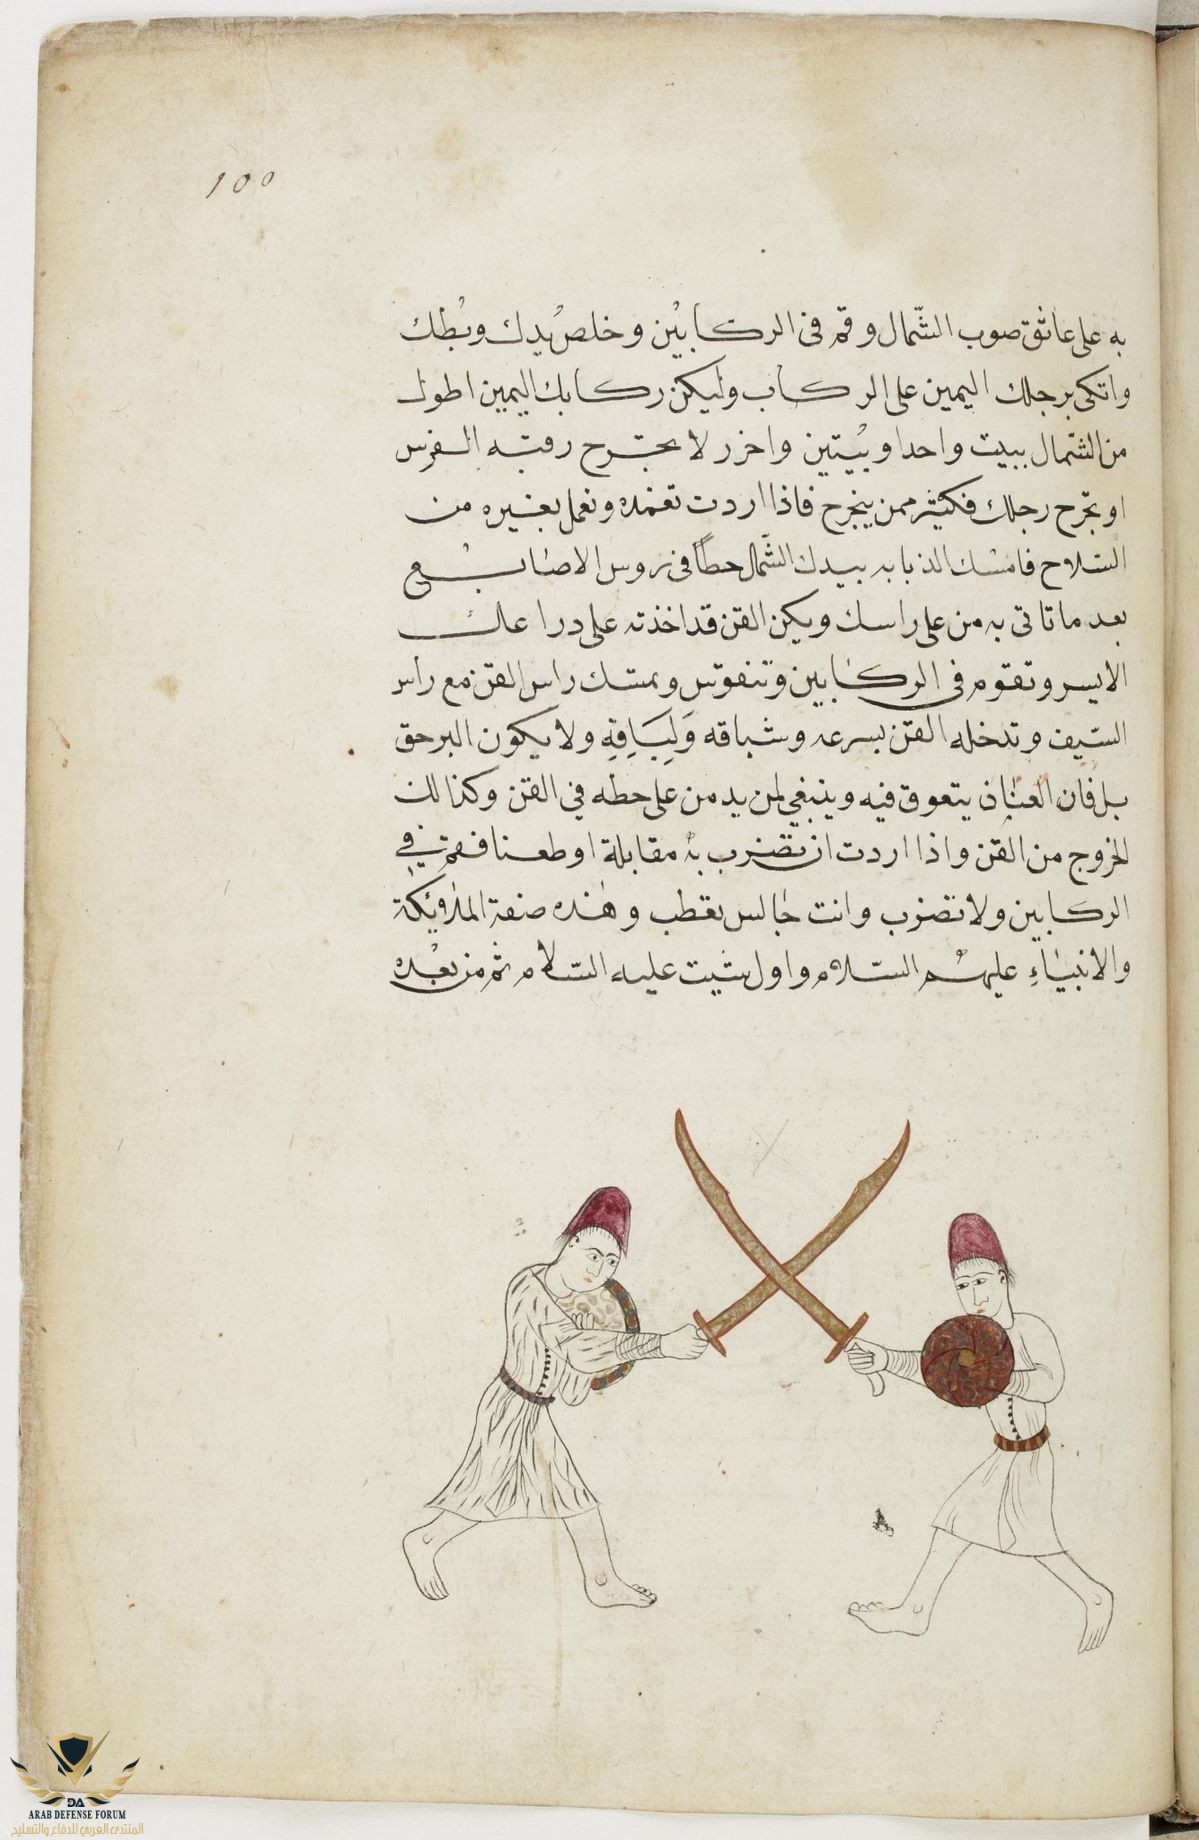 100
به على عاتق صوب الشّمال وقم فى الركابين وخلص يدك وبطك
واتكى برجلك اليمين على الركاب وليكن ركابك اليمين اطول
من الشمال ببيت واحد او بيتين واحزر لا يجترح رقبه الفرس
او تجرح رجلك فكثير ممن ينجرح فاذا اردت تغمده وتعمل بغيره من
السّلاح فامسك الذبابه بيدك الشّمال حطاً فى روس الاصابع
بعد ما تاتى به من على راسك ويكن القرن قد اخذته على دراعك
الايسر وتقوم فى الركابين وتتقوس وتمسك راس القرن مع راس
السّيف وتدخله القرن بسرعه وشباقه وَلِبَاقِةِ ولا يكون البرحق
بل فان العنان يتعوق فيه وينبغي لمن يدمن على حطه في القرن وكذالك
الخروج من القرن واذا اردت ان تضرب به مقابلة او طعنا فقم في
الركابين ولا تضرب وانت جالس بقطب وهذه صنعة الملايكة
والانبياءِ عليهم السّلام واول شيت عليه السّلام ثم من بعده
DA
ARAB DEFENSE FORUM
المنتدى العربي للدفاع والتسليح